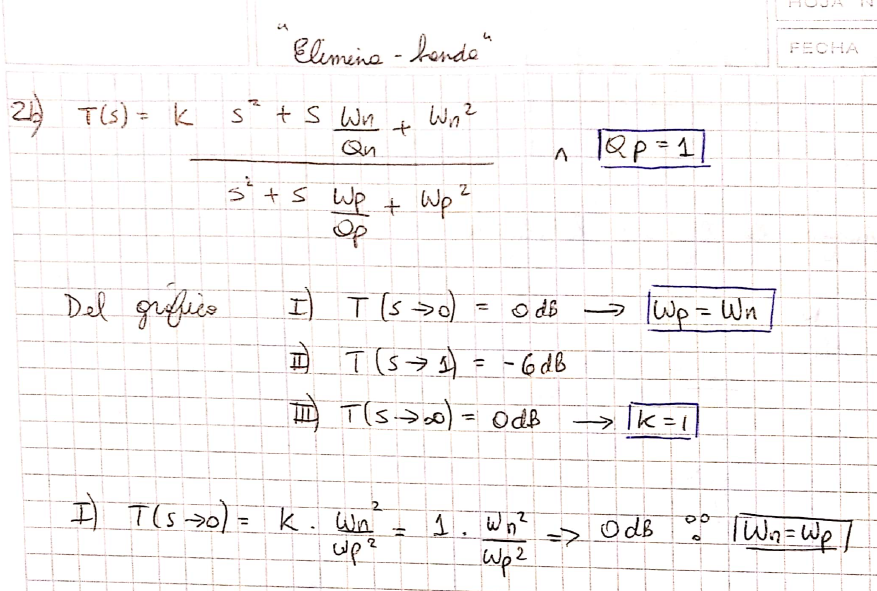 HOJA N
FECHA
"Elimina-banda"
2b) T(s) = k (s² + s Wn/Qn + Wn²) / (s² + s Wp/Qp + Wp²) ∧ Qp = 1
Del gráfico I) T(s→0) = 0 dB → Wp = Wn
II) T(s→1) = -6dB
III) T(s→∞) = 0dB → k=1
I) T(s→0) = k . Wn²/Wp² = 1 . Wn²/Wp² => 0 dB ∴ Wn=Wp